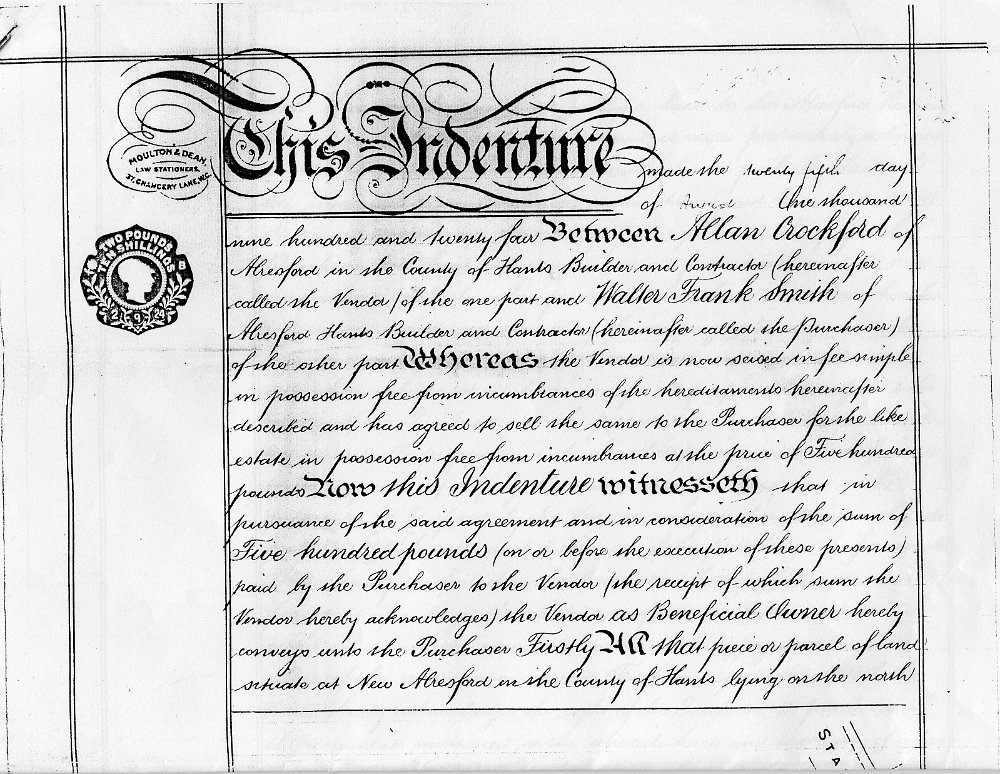 This Indenture
MOULTON & DEAN,
LAW STATIONERS.
37, CHANCERY LANE, W.C.
made the twenty fifth day
of August One thousand
TWO POUNDS
TEN SHILLINGS
2 9 24
nine hundred and twenty four Between Allan Crockford of
Alresford in the County of Hants Builder and Contractor (hereinafter
called the Vendor) of the one part and Walter Frank Smith of
Alresford Hants Builder and Contractor (hereinafter called the Purchaser)
of the other part Whereas the Vendor is now seised in fee simple
in possession free from incumbrances of the hereditaments hereinafter
described and has agreed to sell the same to the Purchaser for the like
estate in possession free from incumbrances at the price of Five hundred
pounds Now this Indenture witnesseth that in
pursuance of the said agreement and in consideration of the sum of
Five hundred pounds (on or before the execution of these presents)
paid by the Purchaser to the Vendor (the receipt of which sum the
Vendor hereby acknowledges) the Vendor as Beneficial Owner hereby
conveys unto the Purchaser Firstly All that piece or parcel of land
situate at New Alresford in the County of Hants lying on the north
STA